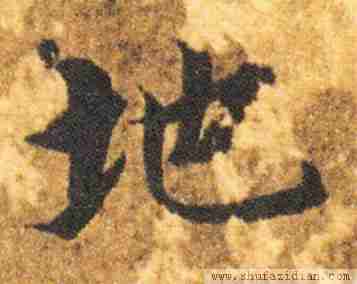 地
www.shufazidian.com